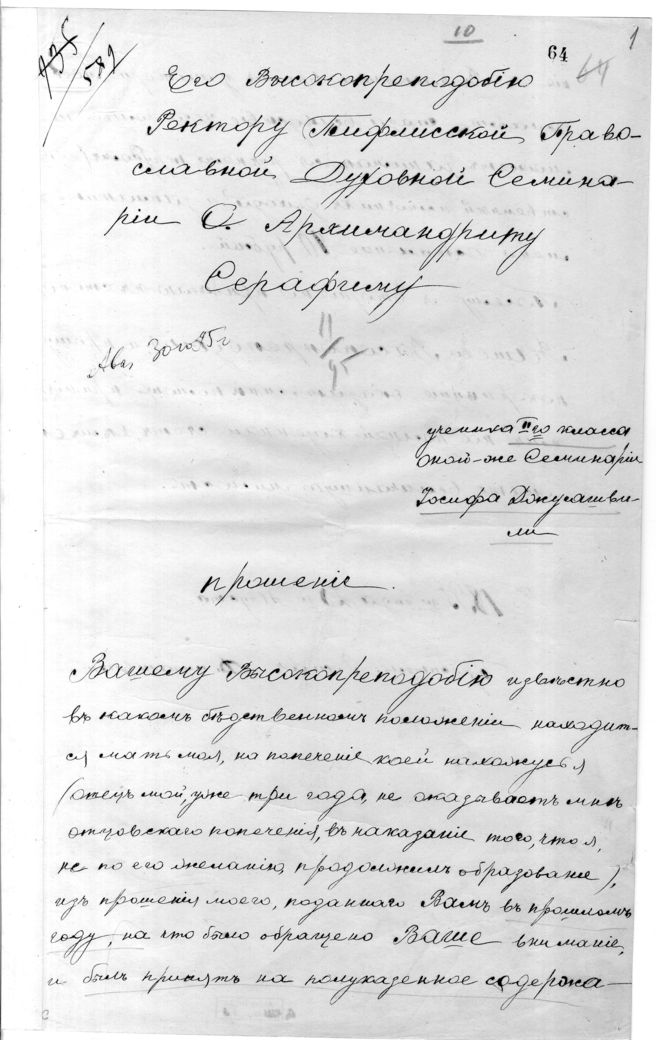 10
64
1
735/582
Его Высокопреподобію
Ректору Тифлисской Право-
славной Духовной Семина-
ріи О. Архимандриту
Серафиму
Авг. 30го 95г
11/95
ученика IIго класса
оной-же Семинаріи
Іосифа Джугашви-
ли
прошеніе.
Вашему Высокопреподобію извѣстно
въ какомъ бѣдственномъ положеніи находит-
ся мать моя, на попеченіе коей нахожусь я
(отецъ мой, уже три года, не оказываетъ мнѣ
отцовскаго попеченія, въ наказаніе того, что я,
не по его желанію, продолжилъ образованіе),
изъ прошенія моего, поданнаго Вамъ въ прошломъ
году, на что было обращено Ваше вниманіе,
и былъ принятъ на полуказенное содержа-